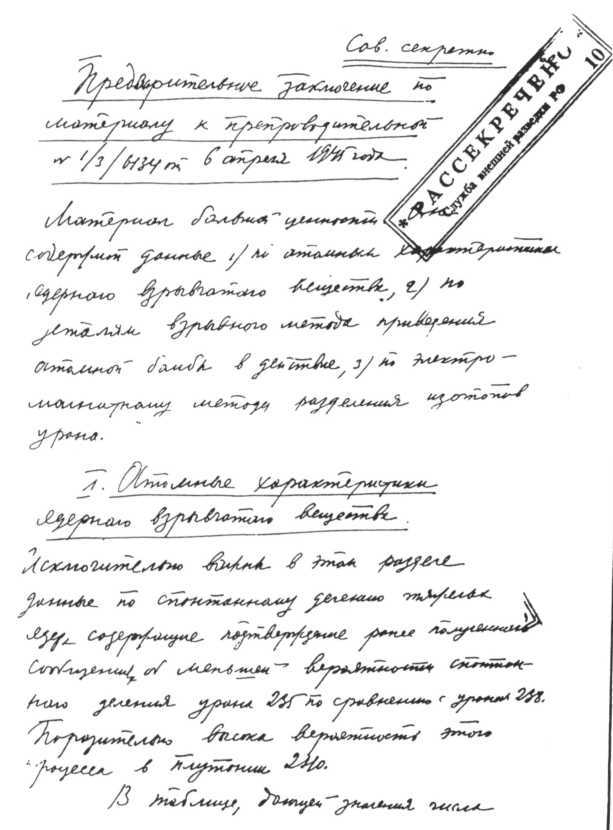 Сов. секретно
Предварительное заключение по
материалу к препроводительной
№ 1/3/6134 от 6 апреля 1945 года.
* РАССЕКРЕЧЕНО
Служба внешней разведки РФ
10
Материал большой ценности. Он
содержит данные 1) по атомным характеристикам
ядерного взрывчатого вещества, 2) по
деталям взрывного метода приведения
атомной бомбы в действие, 3) по электро-
магнитному методу разделения изотопов
урана.
I. Атомные характеристики
ядерного взрывчатого вещества.
Исключительно важны в этом разделе
данные по спонтанному делению тяжелых
ядер, содержащие подтверждение ранее полученного
сообщения об меньшей вероятности спонтан-
ного деления урана 235 по сравнению с ураном 238.
Поразительно высока вероятность этого
процесса в плутонии 240.
В таблице, дающей значения числа